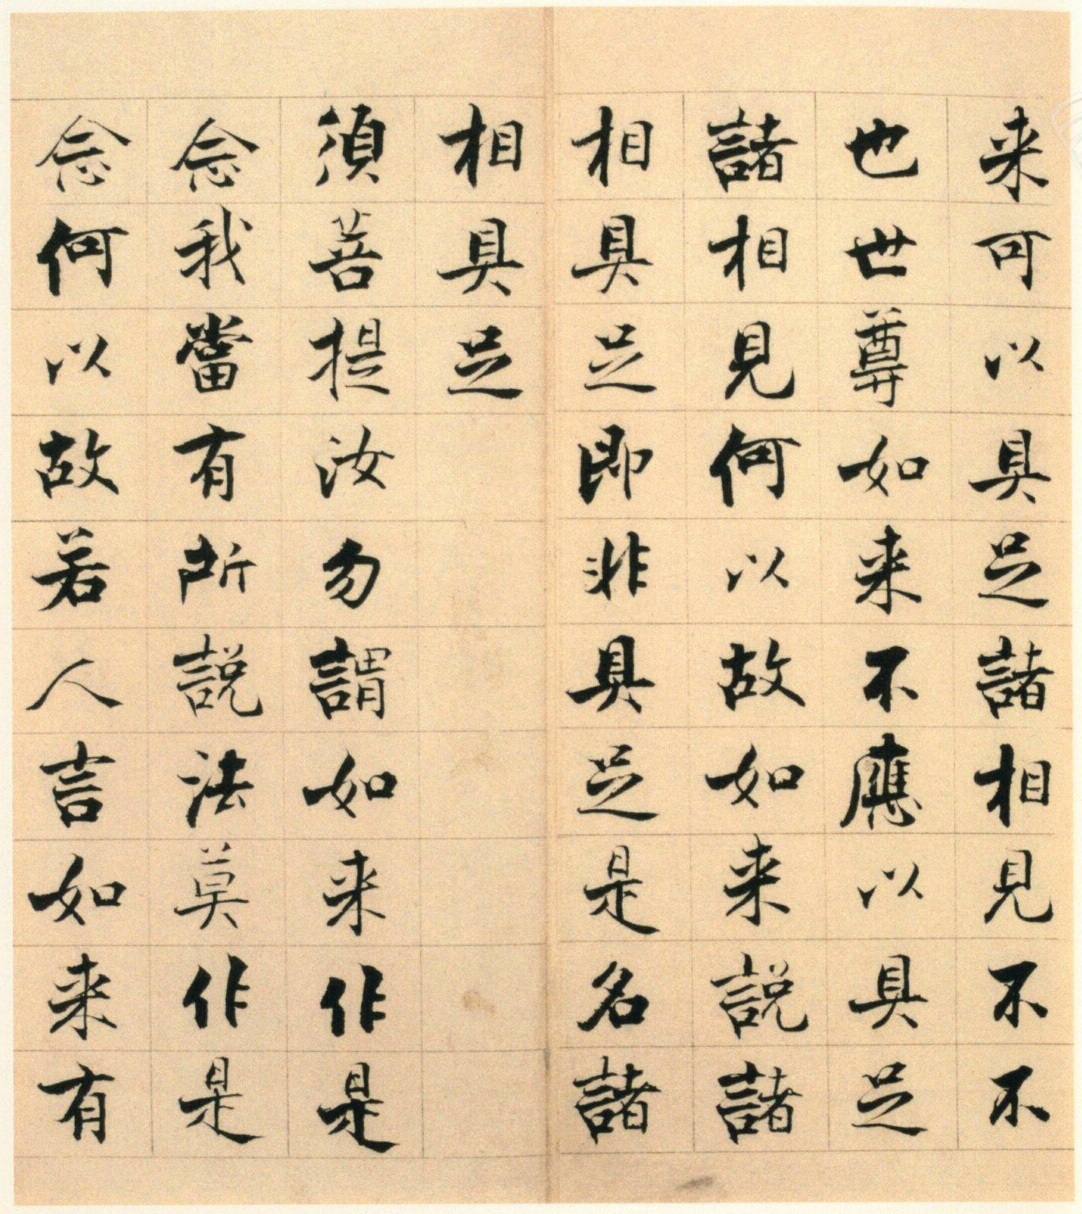 来可以具足諸相見不不
也世尊如来不應以具足
諸相見何以故如来說諸
相具足即非具足是名諸
相具足
須菩提汝勿謂如来作是
念我當有所說法莫作是
念何以故若人言如来有